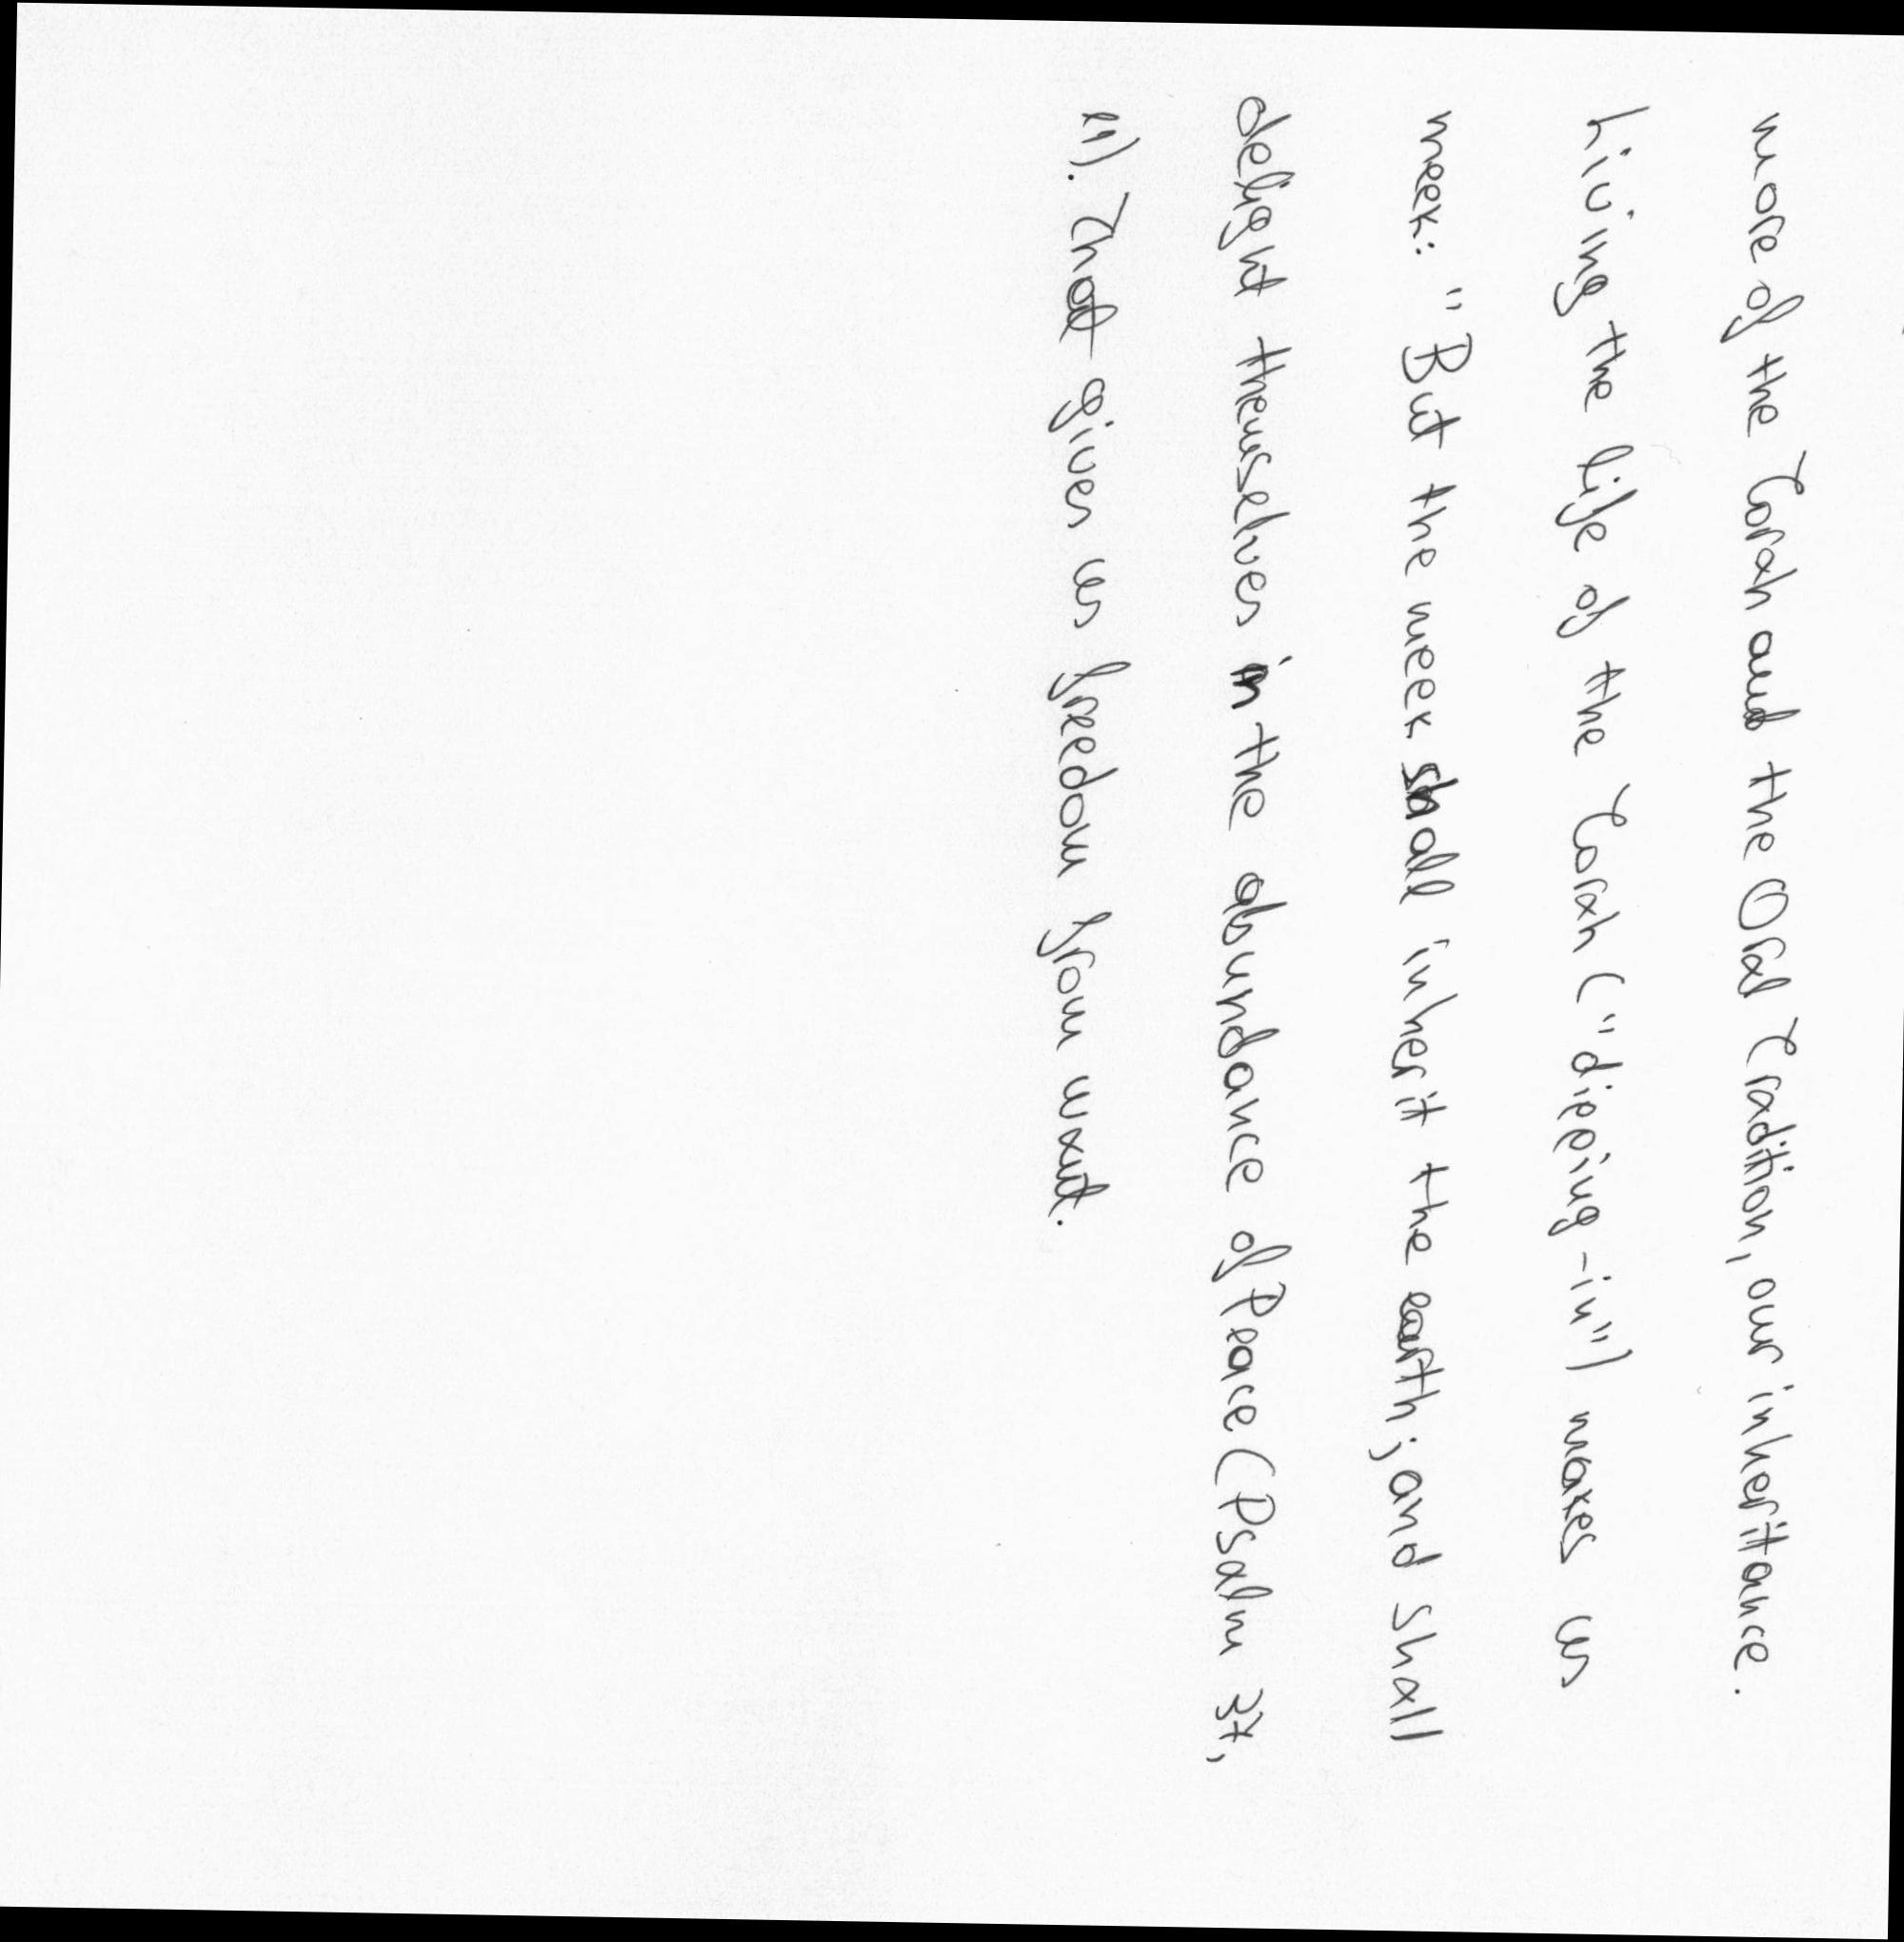 more of the Torah and the Oral Tradition, our inheritance.
Living the life of the Torah ("dipping-in") makes us
meek: "But the meek shall inherit the earth; and shall
delight themselves in the abundance of Peace (Psalm 37,
11). That gives us freedom from want.